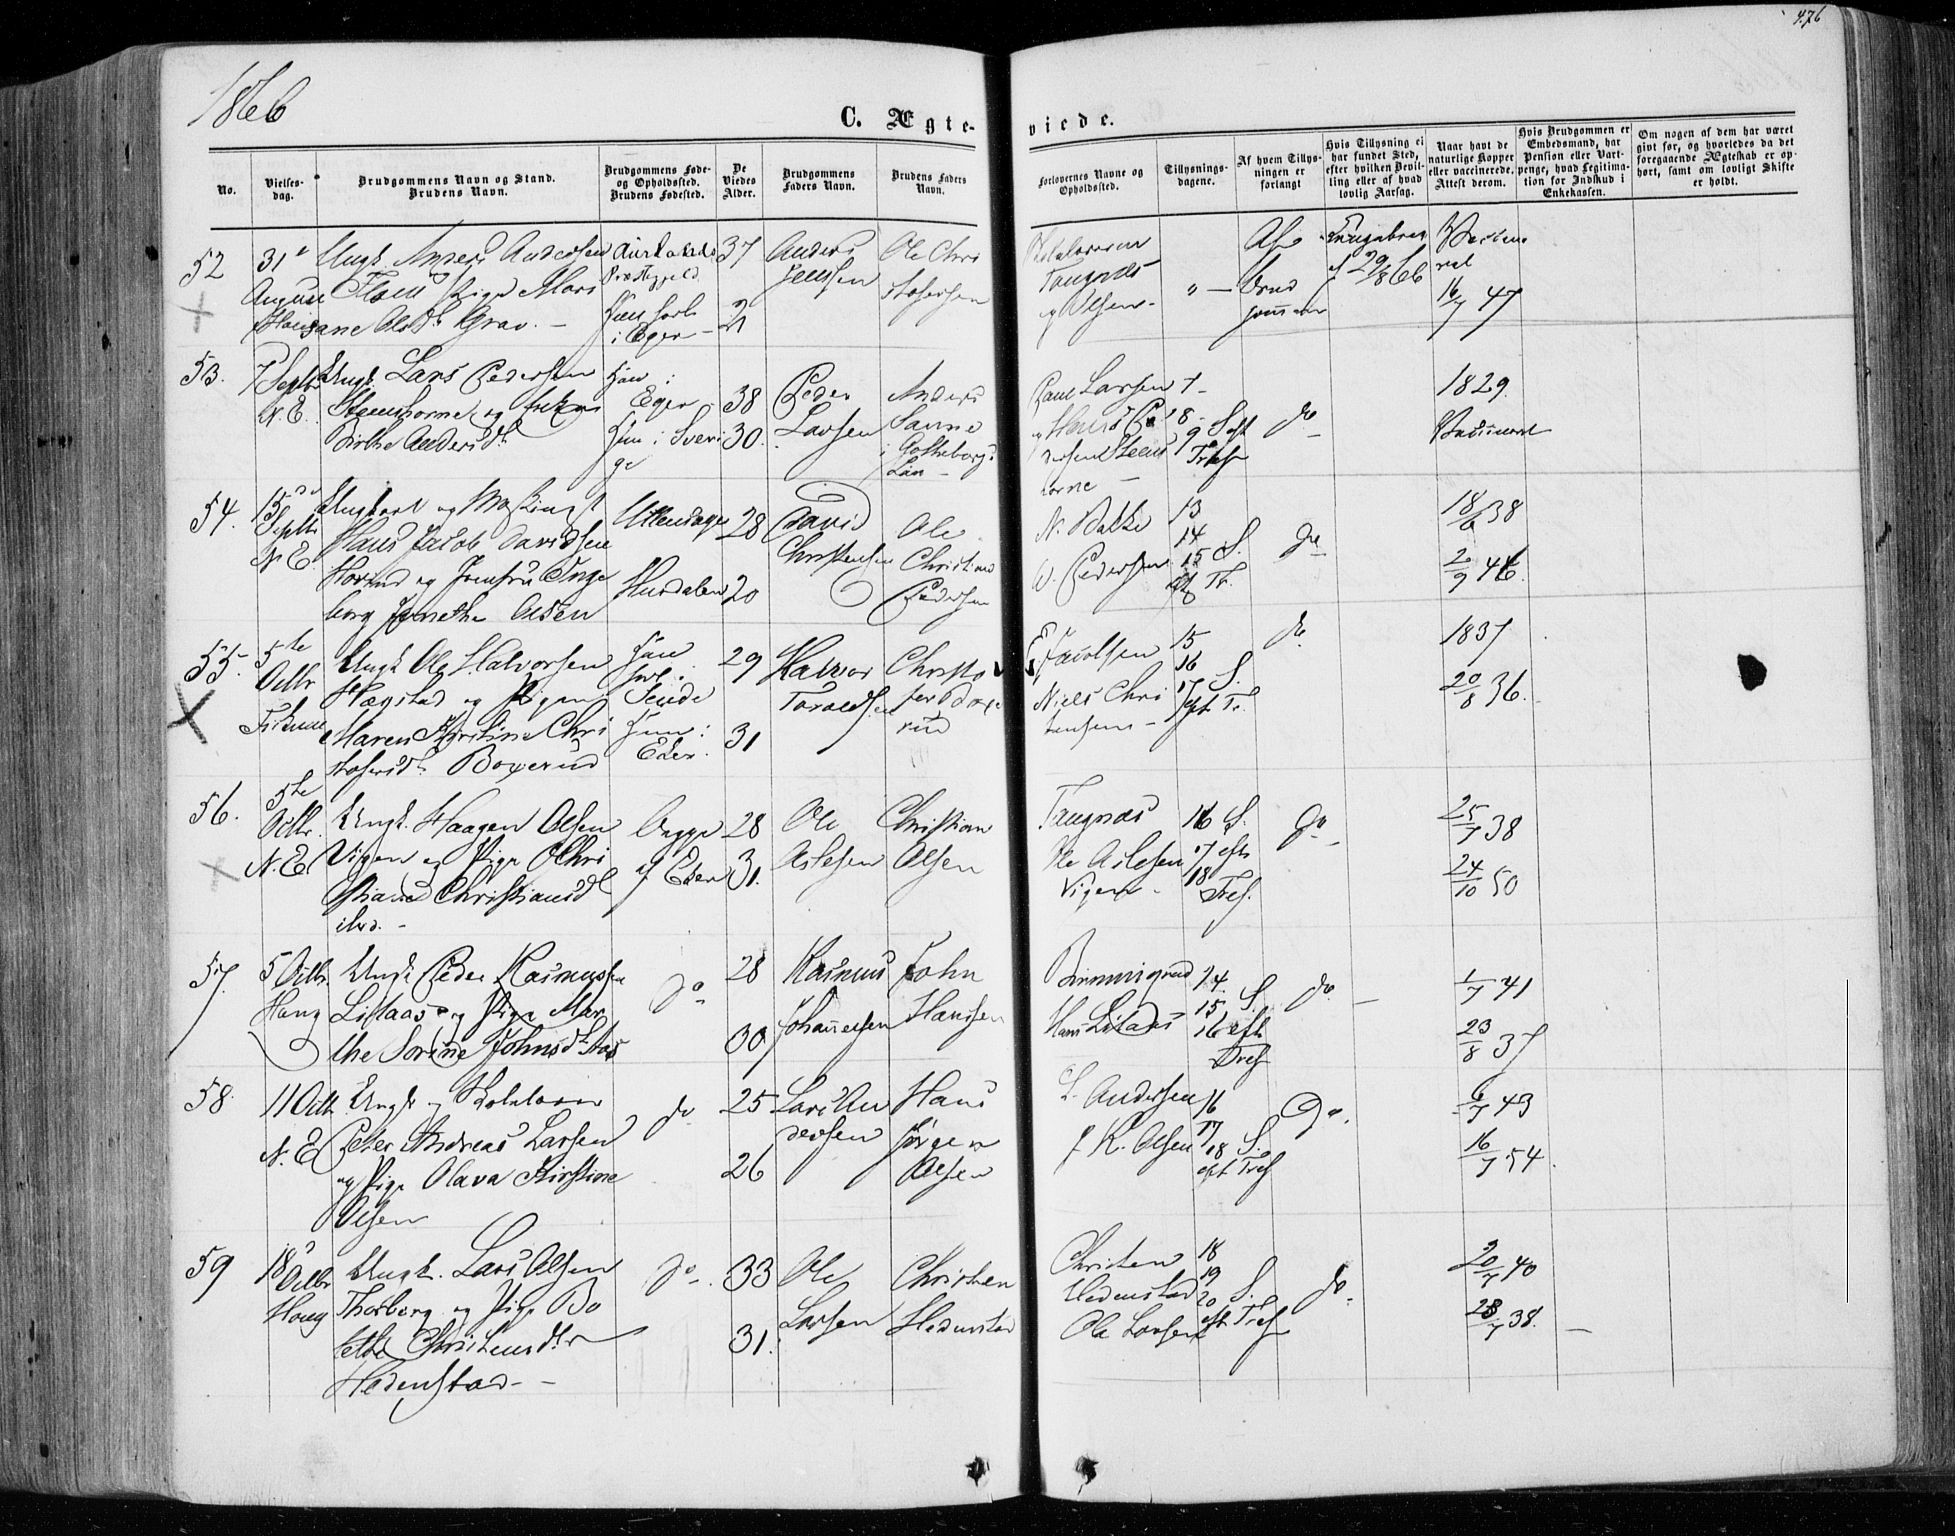 1866
476
C. Ægte-
viede.
No.
Vielses-
dag.
Brudgommens Navn og Stand.
Brudens Navn.
Brudgommens Føde-
og Opholdssted.
Brudens Fødested.
De
Viedes
Alder.
Brudgommens
Faders Navn.
Brudens Faders
Navn.
Forlovernes Navne og
Opholdssted.
Tillysnings-
dagene.
Af hvem Tillys-
ningen er
forlangt
Hvis Tillysning ei
har fundet Sted,
efter hvilken Bevil-
ling eller af hvad
lovlig Aarsag.
Naar havt de
naturlige Kopper
eller vaccinerede.
Attest derom.
Hvis Brudgommen er
Embedsmand, har
Pension eller Vart-
penge, hvad Legitima-
tion for Indskud i
Enkekassen.
Om nogen af dem har været
gift før, og hvorledes da det
foregaaende Ægteskab er op-
hørt, samt om lovligt Skifte
er holdt.
52
31
August
Ungk. Anders Andersen
Pige Mari
Grav. -
i Eger -
37
21
Anders
Jensen
Ole Chri
stofersen
Taugnæs
Olsen -
" -
Af
Brud
gommen
29/8 66
16/7 47
53.
7 Septbr
N. E.
Ungk. Lars Pedersen
Steenshorne og
Birthe Andersdt.
Han i
Eger -
Hun i Sveri
ge
38
30.
Peder
Larsen
Anders
Sanne
i Gotheborgs
Län -
Paul Larsen
og Hans Pe
dersen Steens
horne -
7 -
8 -
9 Sept
Tref
do
1829.
Vaccineret
54.
15de
Septbr
N. E.
Ungkarl og Maskinist
Hans Jacob Davidsen
Horind og Jomfru Inge
borg Jonette Olsen
Hurdalen
28
20
David
Christensen
Ole
Christian
Pedersen
N. Bakke
Pedersen
13
14
15 S.
Tr.
do
18/6 38
2/9 46.
55.
5te
Octbr
Fiskum
Ungk. Ole Halvorsen
Hagstad og Pigen
Maren Kirstine Chri
stofersdt. Boxerud
Han
Hun i
Eker.
29
31
Halvor
Christo
fer Boxe
rud
E. Jacobsen
Niels Chri
stensen -
15
16
17 S.
Sept Tr.
do
1837
20/8 36.
56.
5te
Octbr.
N. E.
Ungk. Haagen Olsen
Vigen og Pige Chri
stiane Christiansdt
ibid. -
Begge
af Eker
28
31.
Ole
Aslesen
Christian
Olsen
Taugnæs
Ole Aslesen
Vigen -
16 S.
17 eft
18
Tref.
do -
25/7 38
24/10 50
57.
5 Octbr.
Haug
Ungk. Peder Rasmussen
Lislaas og Pige Mar
the Sorine Johnsdt. Aas
do
28
30
Rasmus
Johannessen
John
Hansen
Hans Lislaas
14.
15 S.
16 eft
Tref
do -
1/7 41
23/8 37
58.
11 Octb
N. E.
Ungk. og Skolelærer
Peter Andreas Larsen
og Pige Olava Kirstine
Olsen
do
25
26
Lars An
dersen
Hans
Jørgen
Olsen
L. Andersen
J. K. Olsen
16
17
18 S.
eft Tref
Do.
6/7 43
16/7 54.
59
18
Octbr
Haug
Ungk. Lars Olsen
Thorberg og Pige Bo
lethe Christensdtr
Hedenstad -
do.
33
31.
Ole
Larsen
Christen
Hedenstad
Christen
Hedenstad
Ole Larsen
18
19
20 S.
eft Tref
do.
20/7 40
28/7 38. -